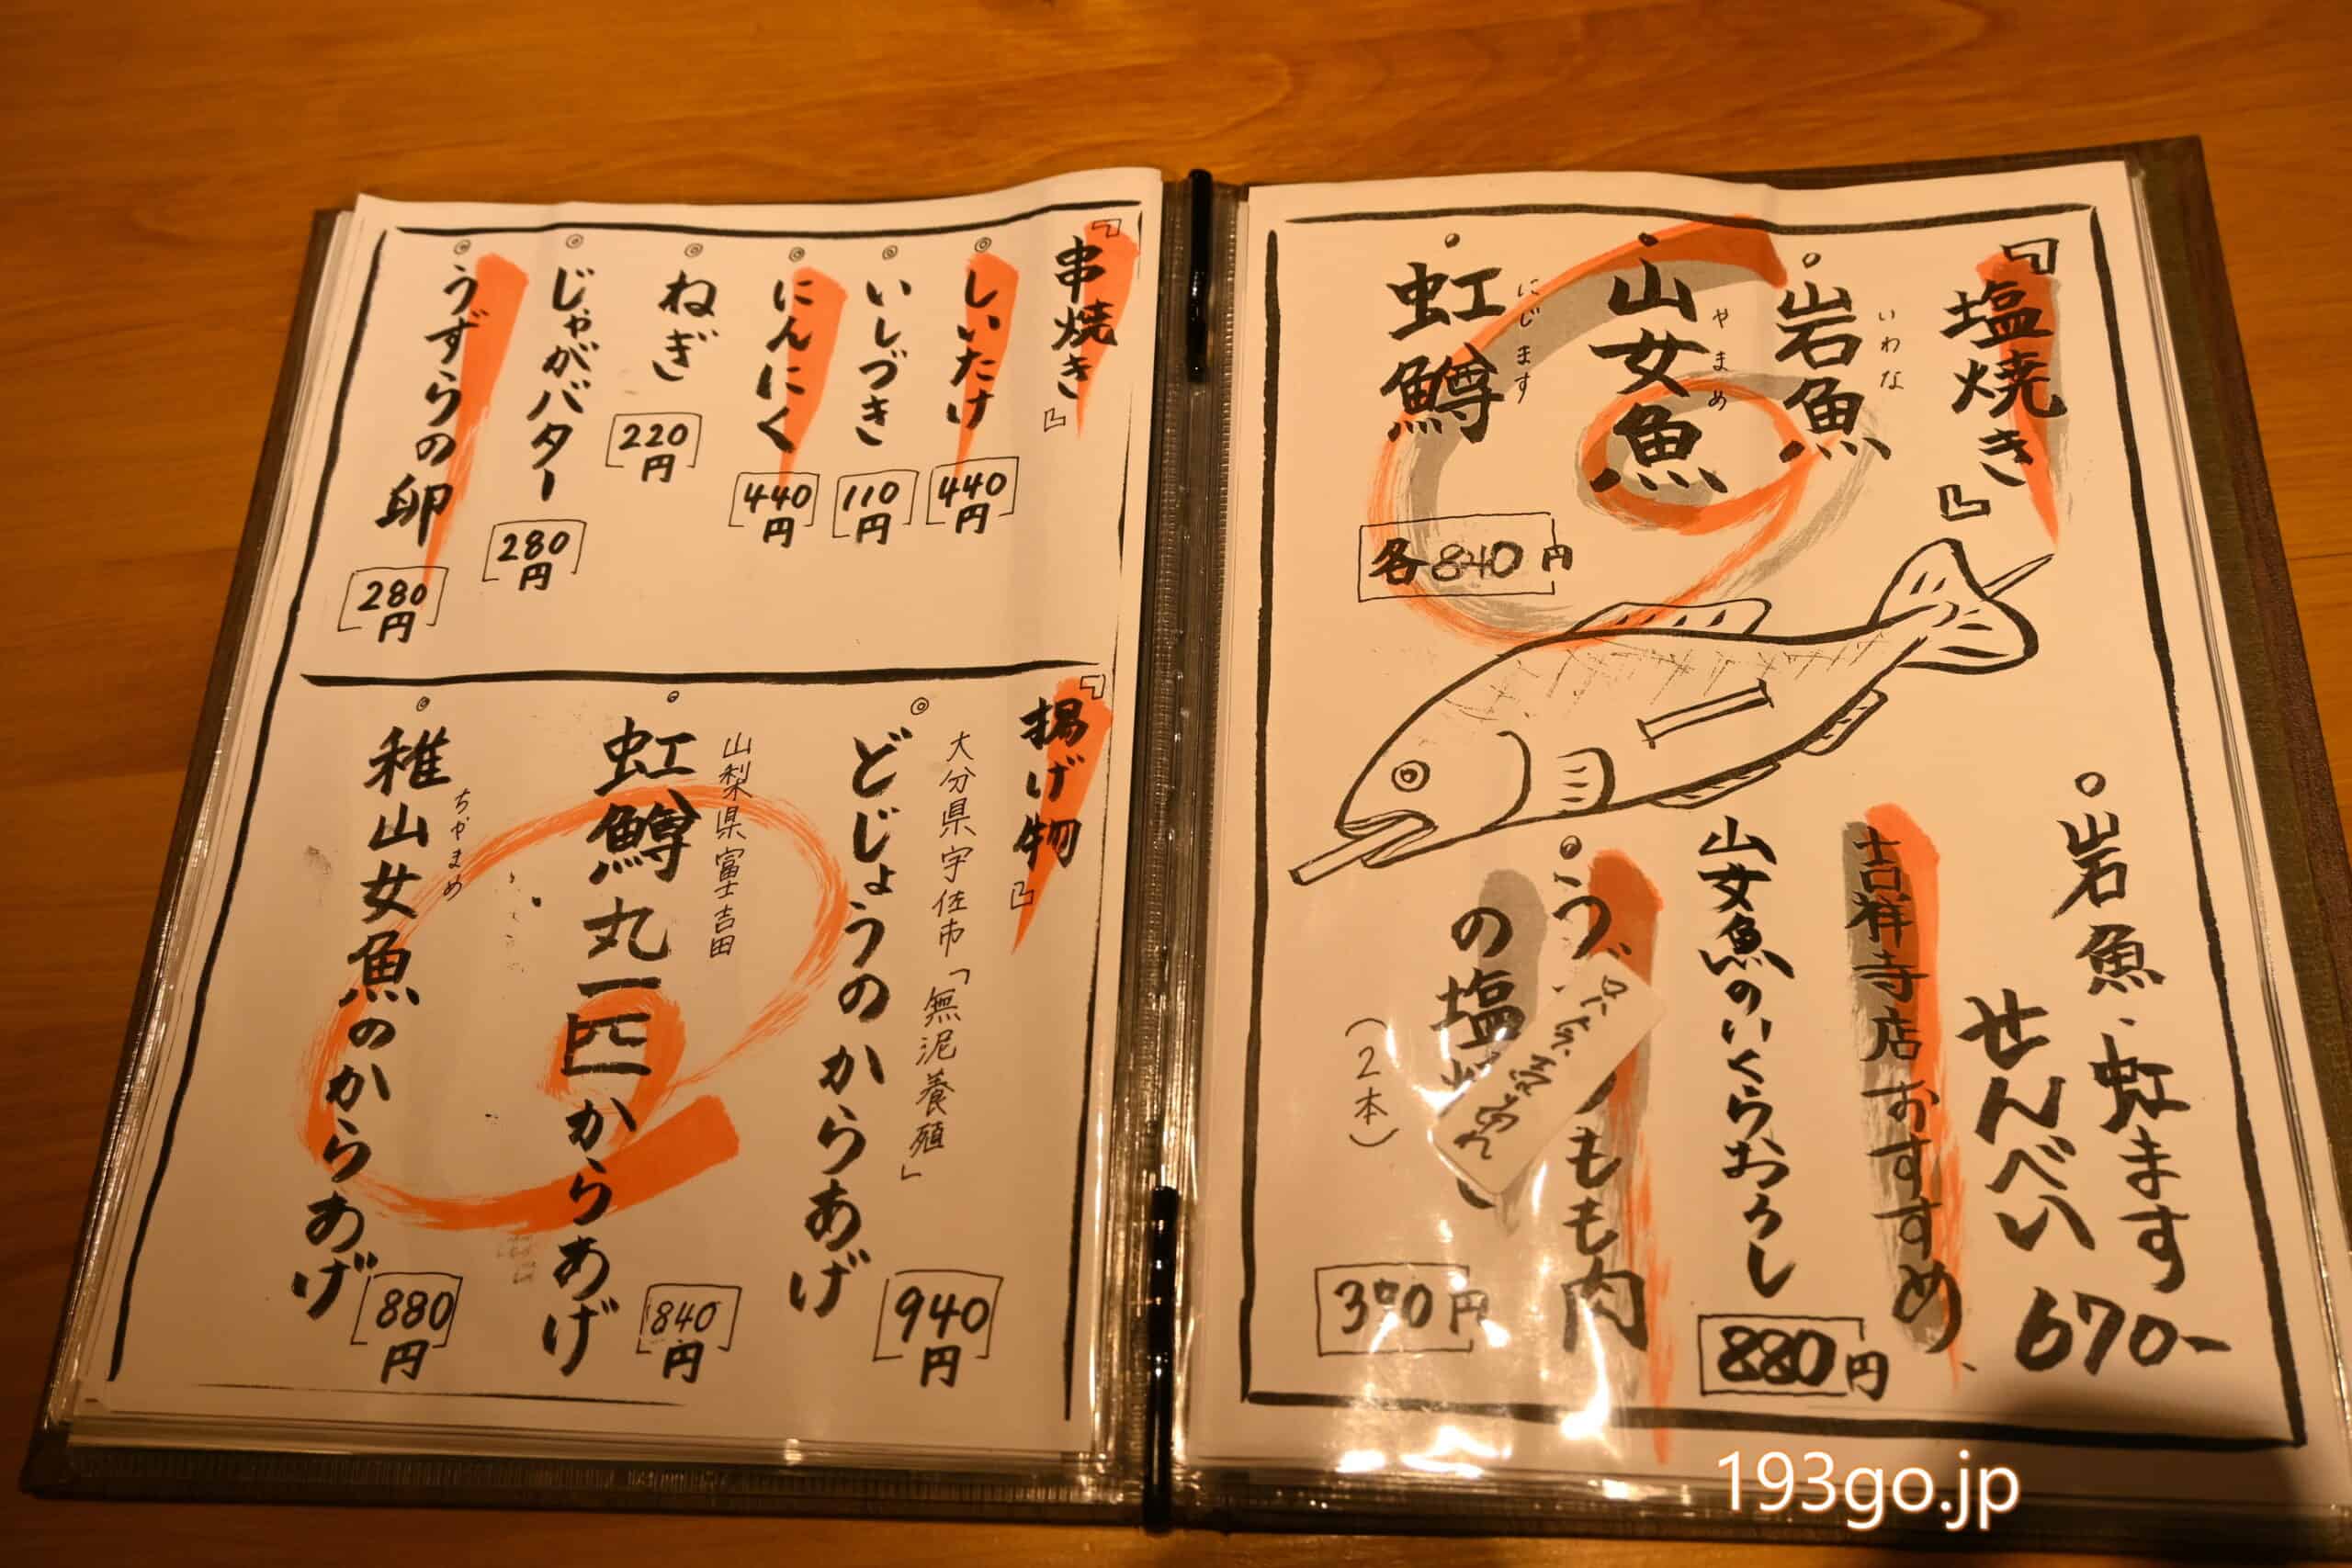 『塩焼き』
岩魚
いわな
山女魚
やまめ
虹鱒
にじます
各840円
岩魚・虹ます
せんべい
670-
吉祥寺店おすすめ
山女魚のいくらおろし
880円
もも肉
の塩
(2本)
円
『串焼き』
しいたけ
440円
いしづき
110円
にんにく
440円
ねぎ
220円
じゃがバター
280円
うずらの卵
280円
『揚げ物』
大分県宇佐市「無泥養殖」
どじょうのからあげ
940円
山梨県富士吉田
虹鱒丸一匹からあげ
840円
稚山女魚のからあげ
ちやまめ
880円
193go.jp